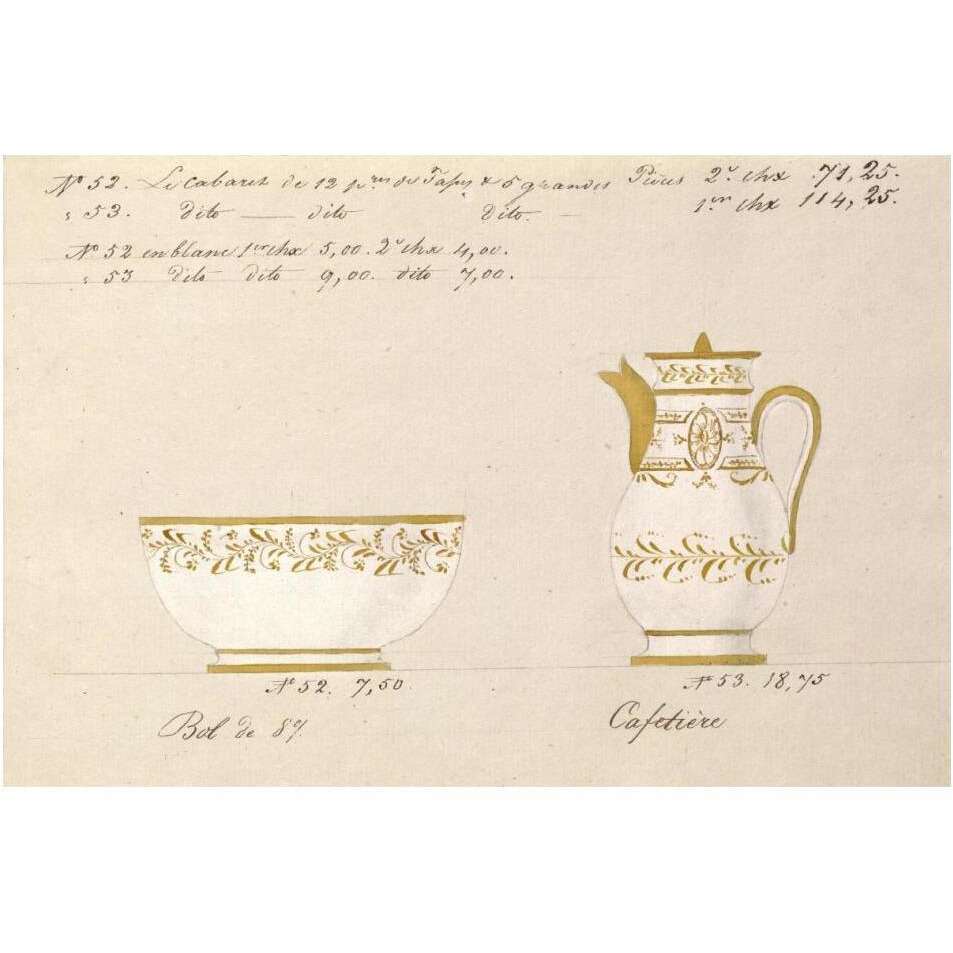 Nº 52. Le Cabaret de 12 pres de Tasses & 5 grandes Pièces 2d chx 71,25.
" 53. dito — dito dito. — 1er chx 114,25.
Nº 52 en blanc 1er chx 5,00. 2d chx 4,00.
" 53 dito dito 9,00. dito 7,00.
Nº 52. 7,50.
Bol de 8
Nº 53. 18,75
Cafetière